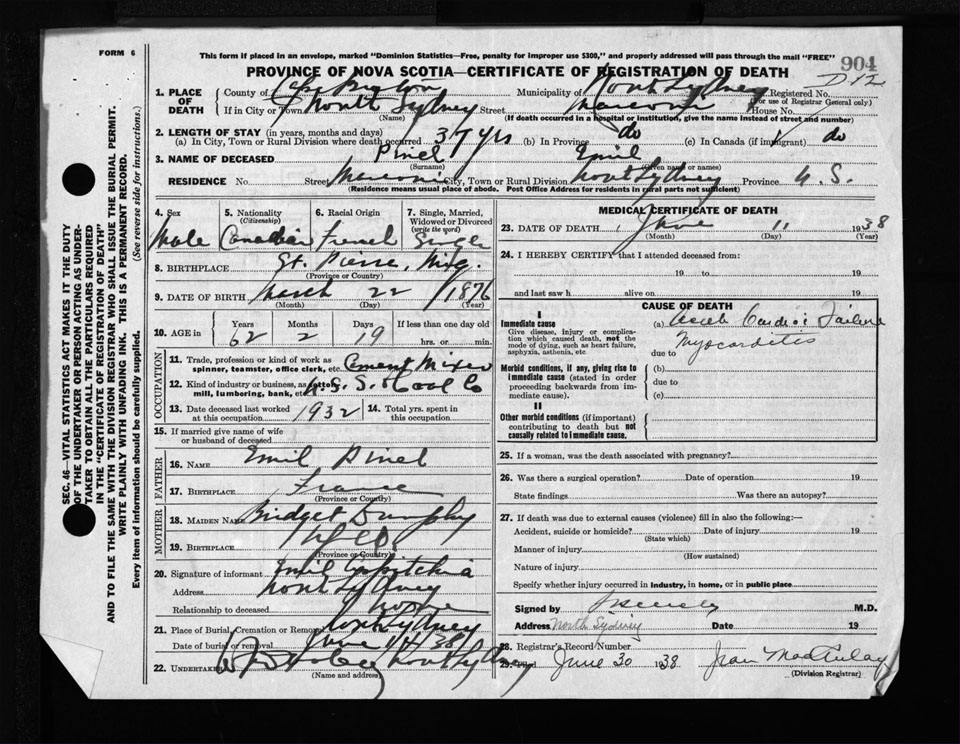 FORM 6
This form if placed in an envelope, marked "Dominion Statistics—Free, penalty for improper use $300," and properly addressed will pass through the mail "FREE"
904
PROVINCE OF NOVA SCOTIA—CERTIFICATE OF REGISTRATION OF DEATH
D12
1. PLACE OF DEATH
County of Cape Breton Municipality of North Sydney Registered No.
(For use of Registrar General only)
If in City or Town North Sydney Street Marconi House No.
(Name) (If death occurred in a hospital or institution, give the name instead of street and number)
2. LENGTH OF STAY (in years, months and days)
(a) In City, Town or Rural Division where death occurred 37 yrs (b) In Province do (c) In Canada (if immigrant) do
3. NAME OF DECEASED Pinel Emil
(Surname) (Given name or names)
RESIDENCE No. Street Marconi City, Town or Rural Division North Sydney Province N. S.
(Residence means usual place of abode. Post Office Address for residents in rural parts not sufficient)
SEC. 46—VITAL STATISTICS ACT MAKES IT THE DUTY
OF THE UNDERTAKER OR PERSON ACTING AS UNDER-
TAKER TO OBTAIN ALL THE PARTICULARS REQUIRED
IN THE "CERTIFICATE OF REGISTRATION OF DEATH"
AND TO FILE THE SAME WITH THE DIVISION REGISTRAR WHO SHALL ISSUE THE BURIAL PERMIT.
WRITE PLAINLY WITH UNFADING INK. THIS IS A PERMANENT RECORD.
Every item of information should be carefully supplied. (See reverse side for instructions.)
4. Sex Male
5. Nationality (Citizenship) Canadian
6. Racial Origin French
7. Single, Married, Widowed or Divorced (write the word) Single
8. BIRTHPLACE St. Pierre, Miq.
(Province or Country)
9. DATE OF BIRTH March 22 1876
(Month) (Day) (Year)
10. AGE in Years Months Days If less than one day old
62 2 19 hrs. or min.
OCCUPATION
11. Trade, profession or kind of work as spinner, teamster, office clerk, etc. Cement Mixer
12. Kind of industry or business, as cotton mill, lumbering, bank, etc. N. S. S. & Coal Co
13. Date deceased last worked at this occupation 1932
14. Total yrs. spent in this occupation
15. If married give name of wife or husband of deceased
FATHER
16. NAME Emil Pinel
17. BIRTHPLACE France
(Province or Country)
MOTHER
18. MAIDEN NAME Bridget Dunphy
19. BIRTHPLACE Nfld.
(Province or Country)
20. Signature of informant Emil
Address North Sydney
Relationship to deceased
21. Place of Burial, Cremation or Removal North Sydney
Date of burial or removal June 14 38
22. UNDERTAKER North Sydney
(Name and address)
MEDICAL CERTIFICATE OF DEATH
23. DATE OF DEATH June 11 1938
(Month) (Day) (Year)
24. I HEREBY CERTIFY that I attended deceased from:
19 to 19
and last saw h alive on 19
CAUSE OF DEATH
I
Immediate cause
Give disease, injury or complication which caused death, not the mode of dying, such as heart failure, asphyxia, asthenia, etc
(a) Acute Cardiac Failure
Myocarditis
due to
Morbid conditions, if any, giving rise to immediate cause (stated in order proceeding backwards from immediate cause).
(b)
due to
(c)
II
Other morbid conditions (if important) contributing to death but not causally related to immediate cause.
25. If a woman, was the death associated with pregnancy?
26. Was there a surgical operation? Date of operation 19
State findings Was there an autopsy?
27. If death was due to external causes (violence) fill in also the following:—
Accident, suicide or homicide? Date of injury 19
(State which)
Manner of injury
(How sustained)
Nature of injury
Specify whether injury occurred in industry, in home, or in public place
Signed by M.D.
Address North Sydney Date 19
28. Registrar's Record Number
Filed June 30 1938 Jean MacAulay
(Division Registrar)